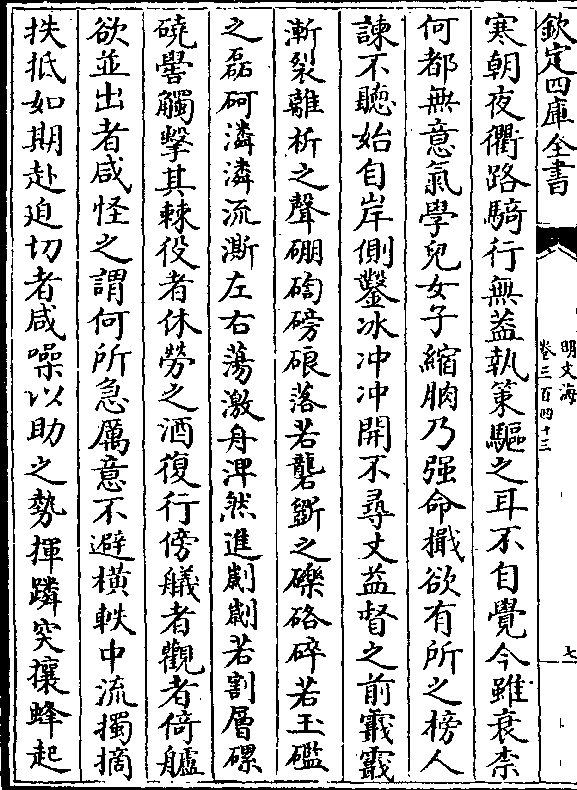 欽定四庫全書
明文海
卷三百四十三
七
寒朝夜衢路騎行無葢執策驅之耳不自覺今雖衰柰
何都無意氣學兒女子縮朒乃强命檥欲有所之榜人
諫不聽始自岸側鑿冰冲冲開不尋丈益督之前霰霰
漸裂離析之聲硼磕磅硠落若礱斲之礫硌碎若玉鑑
之磊砢潾潾流澌左右蕩激舟渒然進劇劇若割層磥
磽礐觸擊其棘役者休勞之酒復行傍艤者觀者倚艫
欲並出者咸怪之謂何所急厲意不避横軼中流擉摘
抶抵如期赴迫切者咸噪以助之勢揮蹸突攘蜂起